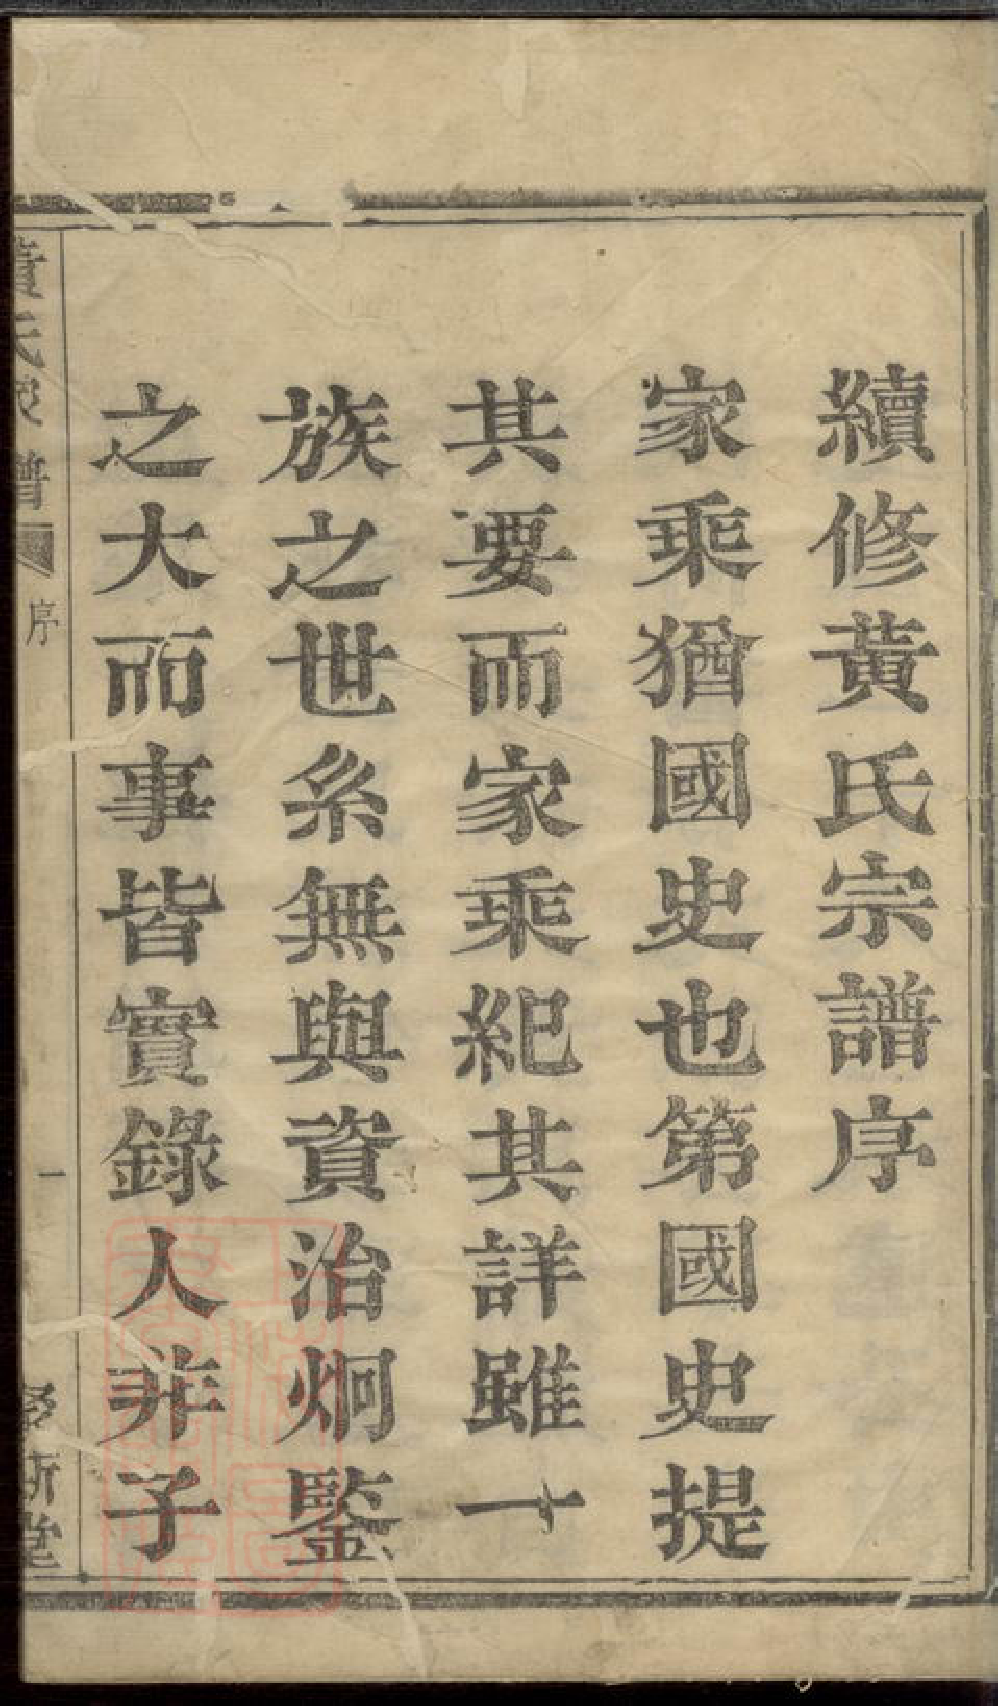 續修黃氏宗譜序
家乘猶國史也第國史提
其要而家乘紀其詳雖一
族之世系無與資治炯鑒
之大而事皆實錄人非子
黃氏宗譜
序
一
堂